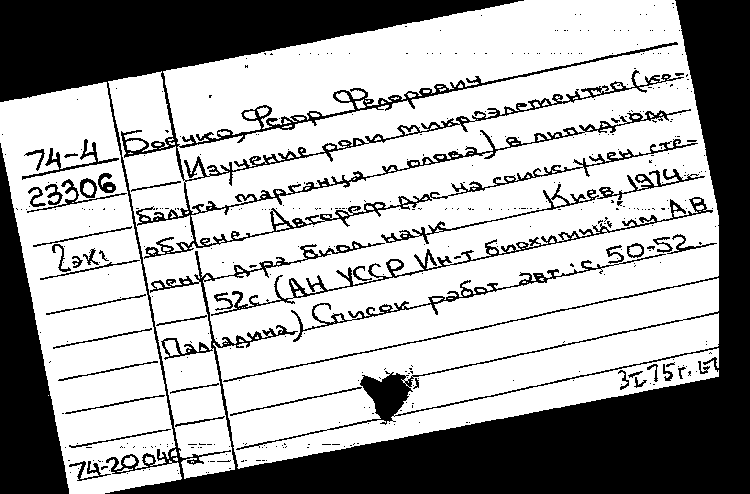 74-4
23306
2 экз
Боечко, Федор Федорович
Изучение роли микроэлементов (ко-
бальта, марганца и олова) в липидном
обмене. Автореф. дис. на соиск. учен. сте-
пени д-ра биол. наук Киев, 1974.
52с. (АН УССР Ин-т биохимии им А.В
Палладина) Список работ авт.: с. 50-52.
3 I 75 г.
74-20046а